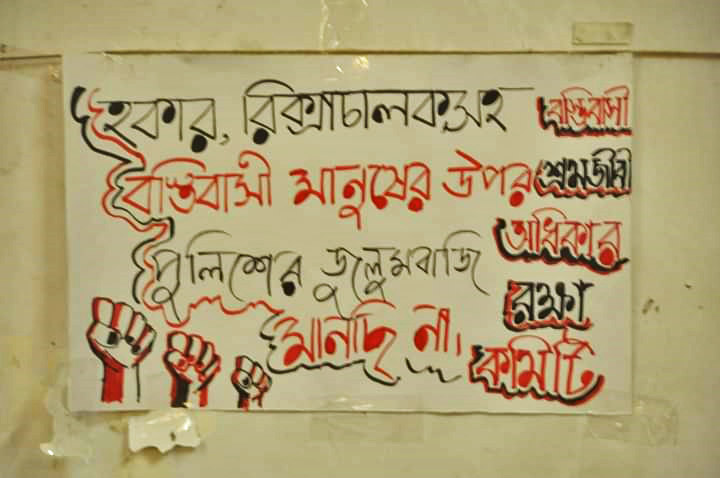 হকার, রিকশাচালকসহ
বস্তিবাসী মানুষের উপর
পুলিশের জুলুমবাজি
মানছি না।
বস্তিবাসী
শ্রমজীবী
অধিকার
রক্ষা
কমিটি